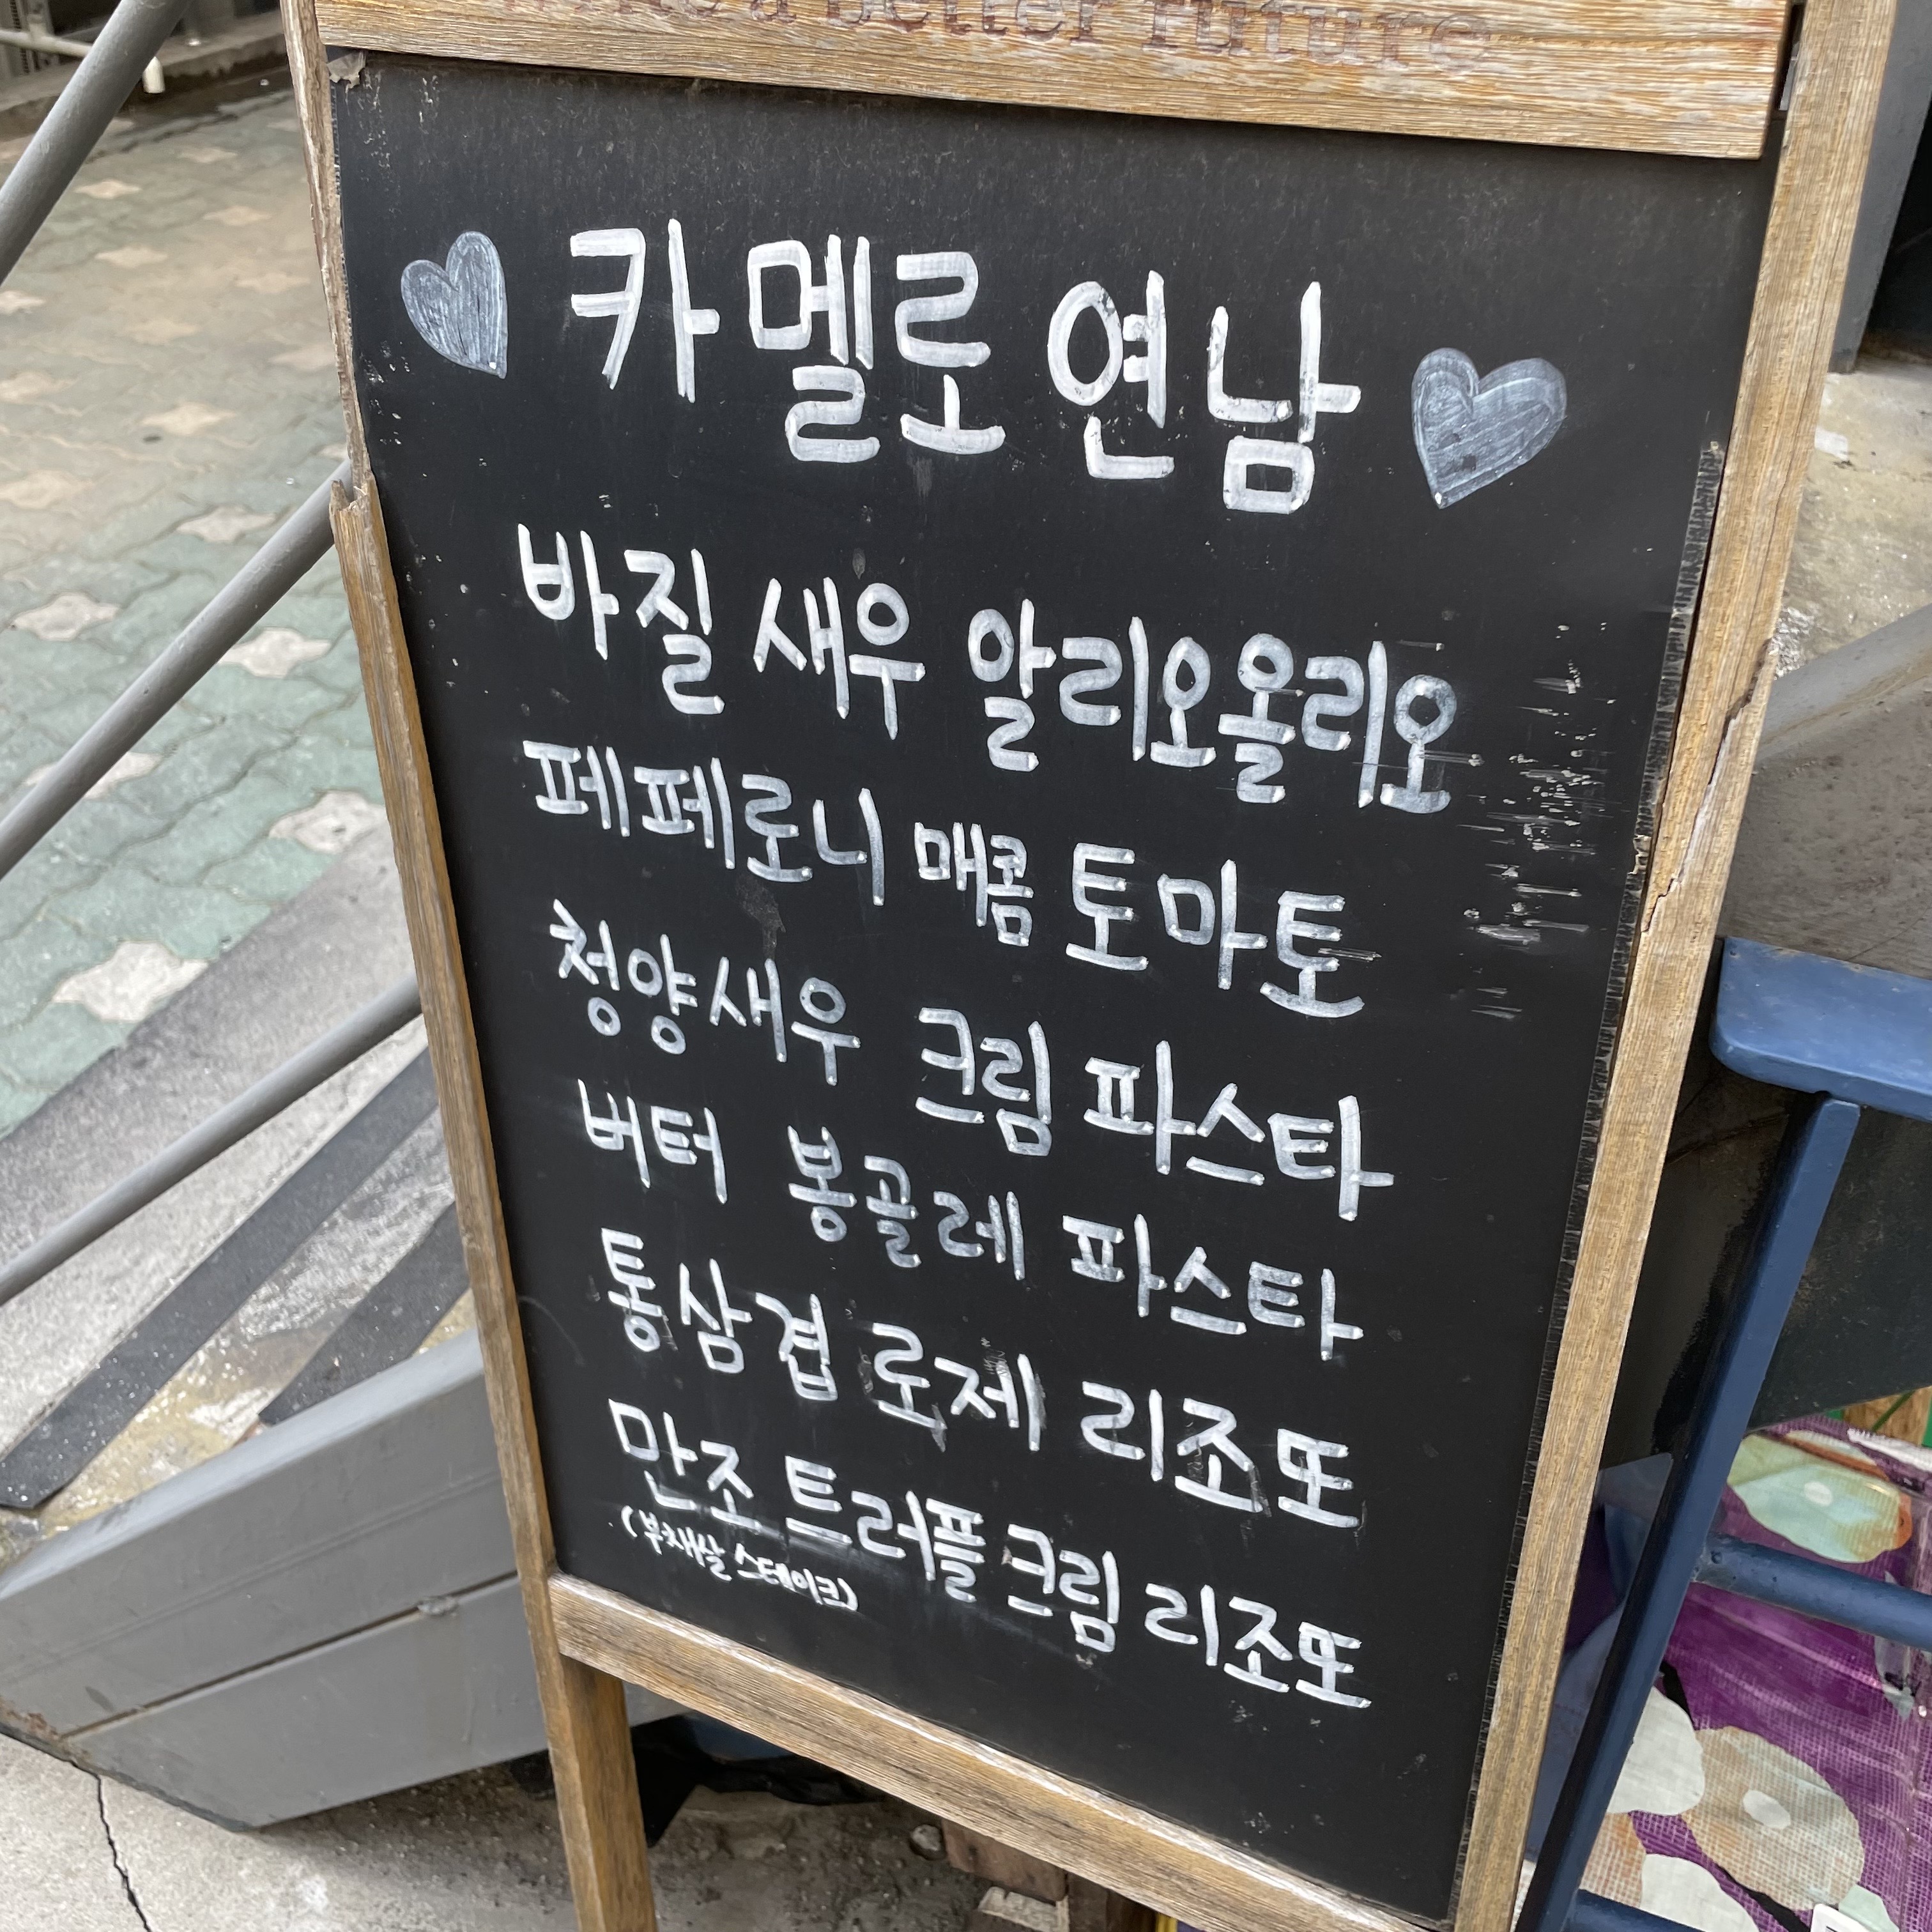 a better future
카멜로 연남
바질 새우 알리오올리오
페페로니 매콤 토마토
청양새우 크림 파스타
버터 봉골레 파스타
통삼겹 로제 리조또
만조 트러플 크림 리조또
(부채살 스테이크)